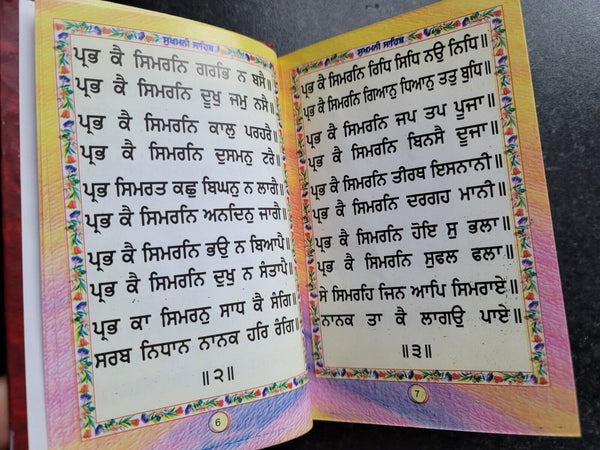 ਸੁਖਮਨੀ ਸਾਹਿਬ
ਪ੍ਰਭ ਕੈ ਸਿਮਰਨਿ ਗਰਭਿ ਨ ਬਸੈ॥
ਪ੍ਰਭ ਕੈ ਸਿਮਰਨਿ ਦੂਖੁ ਜਮੁ ਨਸੈ॥
ਪ੍ਰਭ ਕੈ ਸਿਮਰਨਿ ਕਾਲੁ ਪਰਹਰੈ॥
ਪ੍ਰਭ ਕੈ ਸਿਮਰਨਿ ਦੁਸਮਨੁ ਟਰੈ॥
ਪ੍ਰਭ ਸਿਮਰਤ ਕਛੁ ਬਿਘਨੁ ਨ ਲਾਗੈ॥
ਪ੍ਰਭ ਕੈ ਸਿਮਰਨਿ ਅਨਦਿਨੁ ਜਾਗੈ॥
ਪ੍ਰਭ ਕੈ ਸਿਮਰਨਿ ਭਉ ਨ ਬਿਆਪੈ॥
ਪ੍ਰਭ ਕੈ ਸਿਮਰਨਿ ਦੁਖੁ ਨ ਸੰਤਾਪੈ॥
ਪ੍ਰਭ ਕਾ ਸਿਮਰਨੁ ਸਾਧ ਕੈ ਸੰਗਿ॥
ਸਰਬ ਨਿਧਾਨ ਨਾਨਕ ਹਰਿ ਰੰਗਿ॥
॥੨॥
6
ਸੁਖਮਨੀ ਸਾਹਿਬ
ਪ੍ਰਭ ਕੈ ਸਿਮਰਨਿ ਰਿਧਿ ਸਿਧਿ ਨਉ ਨਿਧਿ॥
ਪ੍ਰਭ ਕੈ ਸਿਮਰਨਿ ਗਿਆਨੁ ਧਿਆਨੁ ਤਤੁ ਬੁਧਿ॥
ਪ੍ਰਭ ਕੈ ਸਿਮਰਨਿ ਜਪ ਤਪ ਪੂਜਾ॥
ਪ੍ਰਭ ਕੈ ਸਿਮਰਨਿ ਬਿਨਸੈ ਦੂਜਾ॥
ਪ੍ਰਭ ਕੈ ਸਿਮਰਨਿ ਤੀਰਥ ਇਸਨਾਨੀ॥
ਪ੍ਰਭ ਕੈ ਸਿਮਰਨਿ ਦਰਗਹ ਮਾਨੀ॥
ਪ੍ਰਭ ਕੈ ਸਿਮਰਨਿ ਹੋਇ ਸੁ ਭਲਾ॥
ਪ੍ਰਭ ਕੈ ਸਿਮਰਨਿ ਸੁਫਲ ਫਲਾ॥
ਸੇ ਸਿਮਰਹਿ ਜਿਨ ਆਪਿ ਸਿਮਰਾਏ॥
ਨਾਨਕ ਤਾ ਕੈ ਲਾਗਉ ਪਾਏ॥
॥੩॥
7